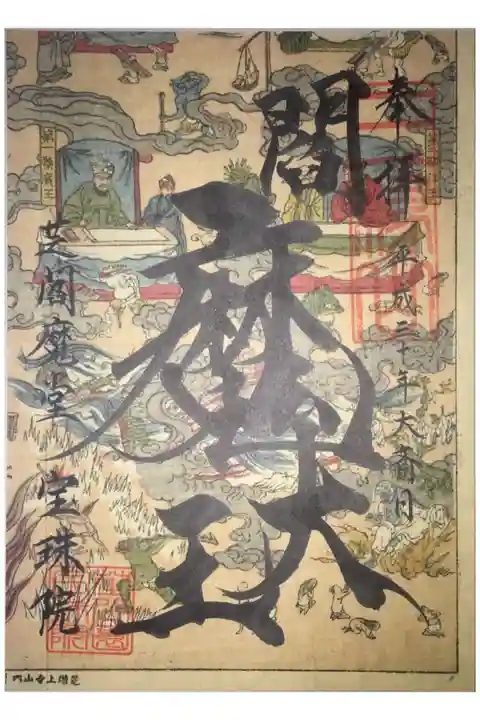 奉拝 平成三十年大斎日
閻魔大王
芝閻魔堂 宝珠院
第一秦廣王
芝増上寺山内